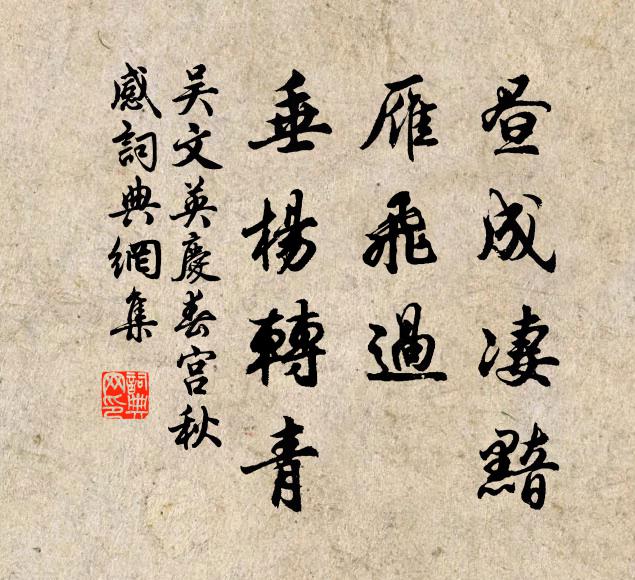 昼成凄黯
雁飛過
垂楊轉青
吴文英慶春宮秋
感詞典網集
詞典網印